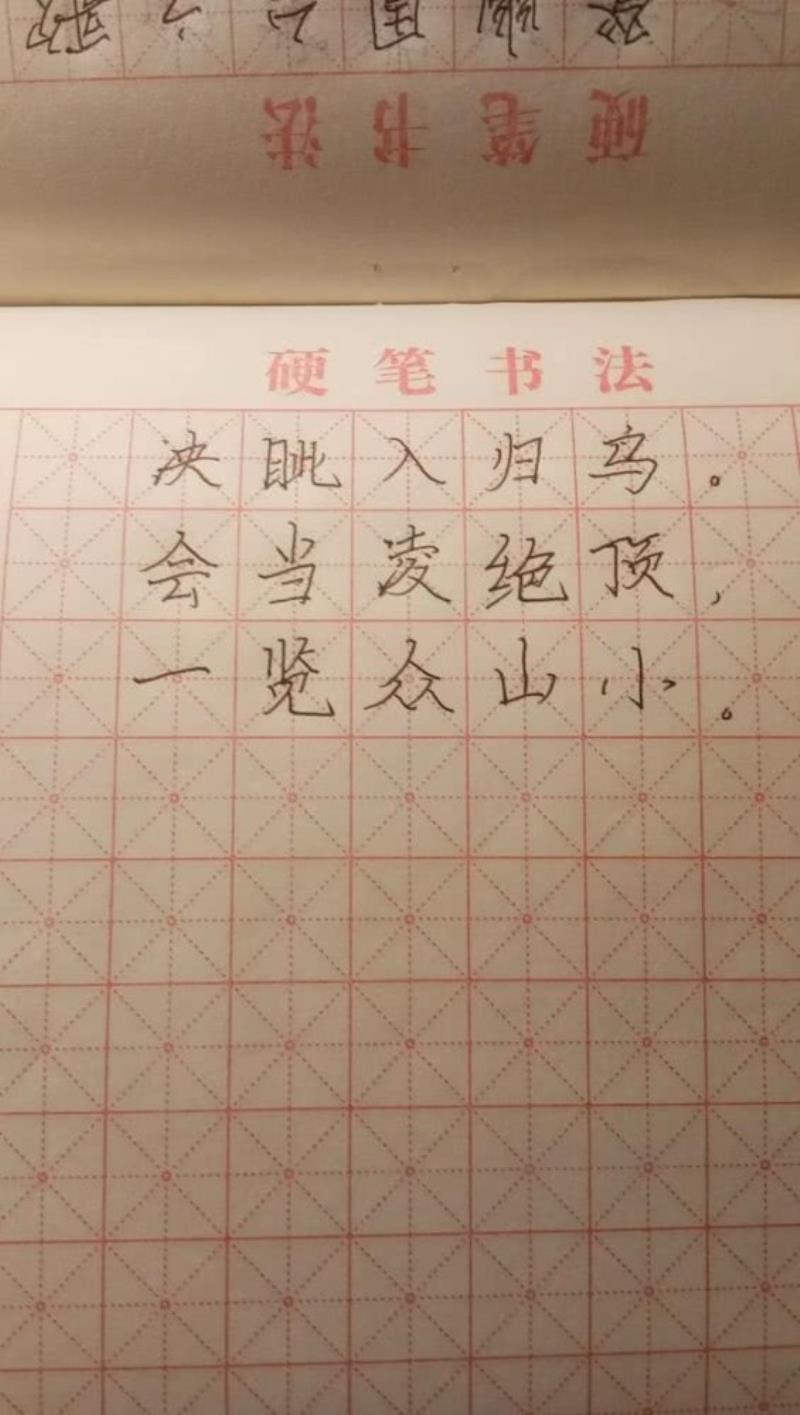 硬笔书法
硬笔书法
决眦入归鸟。
会当凌绝顶,
一览众山小。